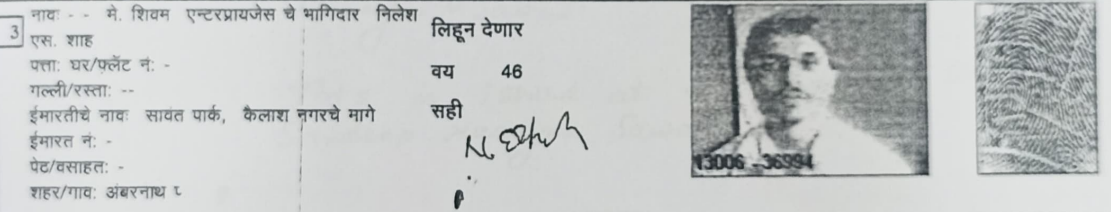 3
नावः - - मे. शिवम एन्टरप्रायजेस चे भागिदार निलेश
एस. शाह
पत्ताः घर/फ्लॅट नं: -
गल्ली/रस्ताः --
ईमारतीचे नावः सावंत पार्क, कैलाश नगरचे मागे
ईमारत नं: -
पेठ/वसाहतः -
शहर/गावः अंबरनाथ
लिहून देणार
वय 46
सही
13006 -36994